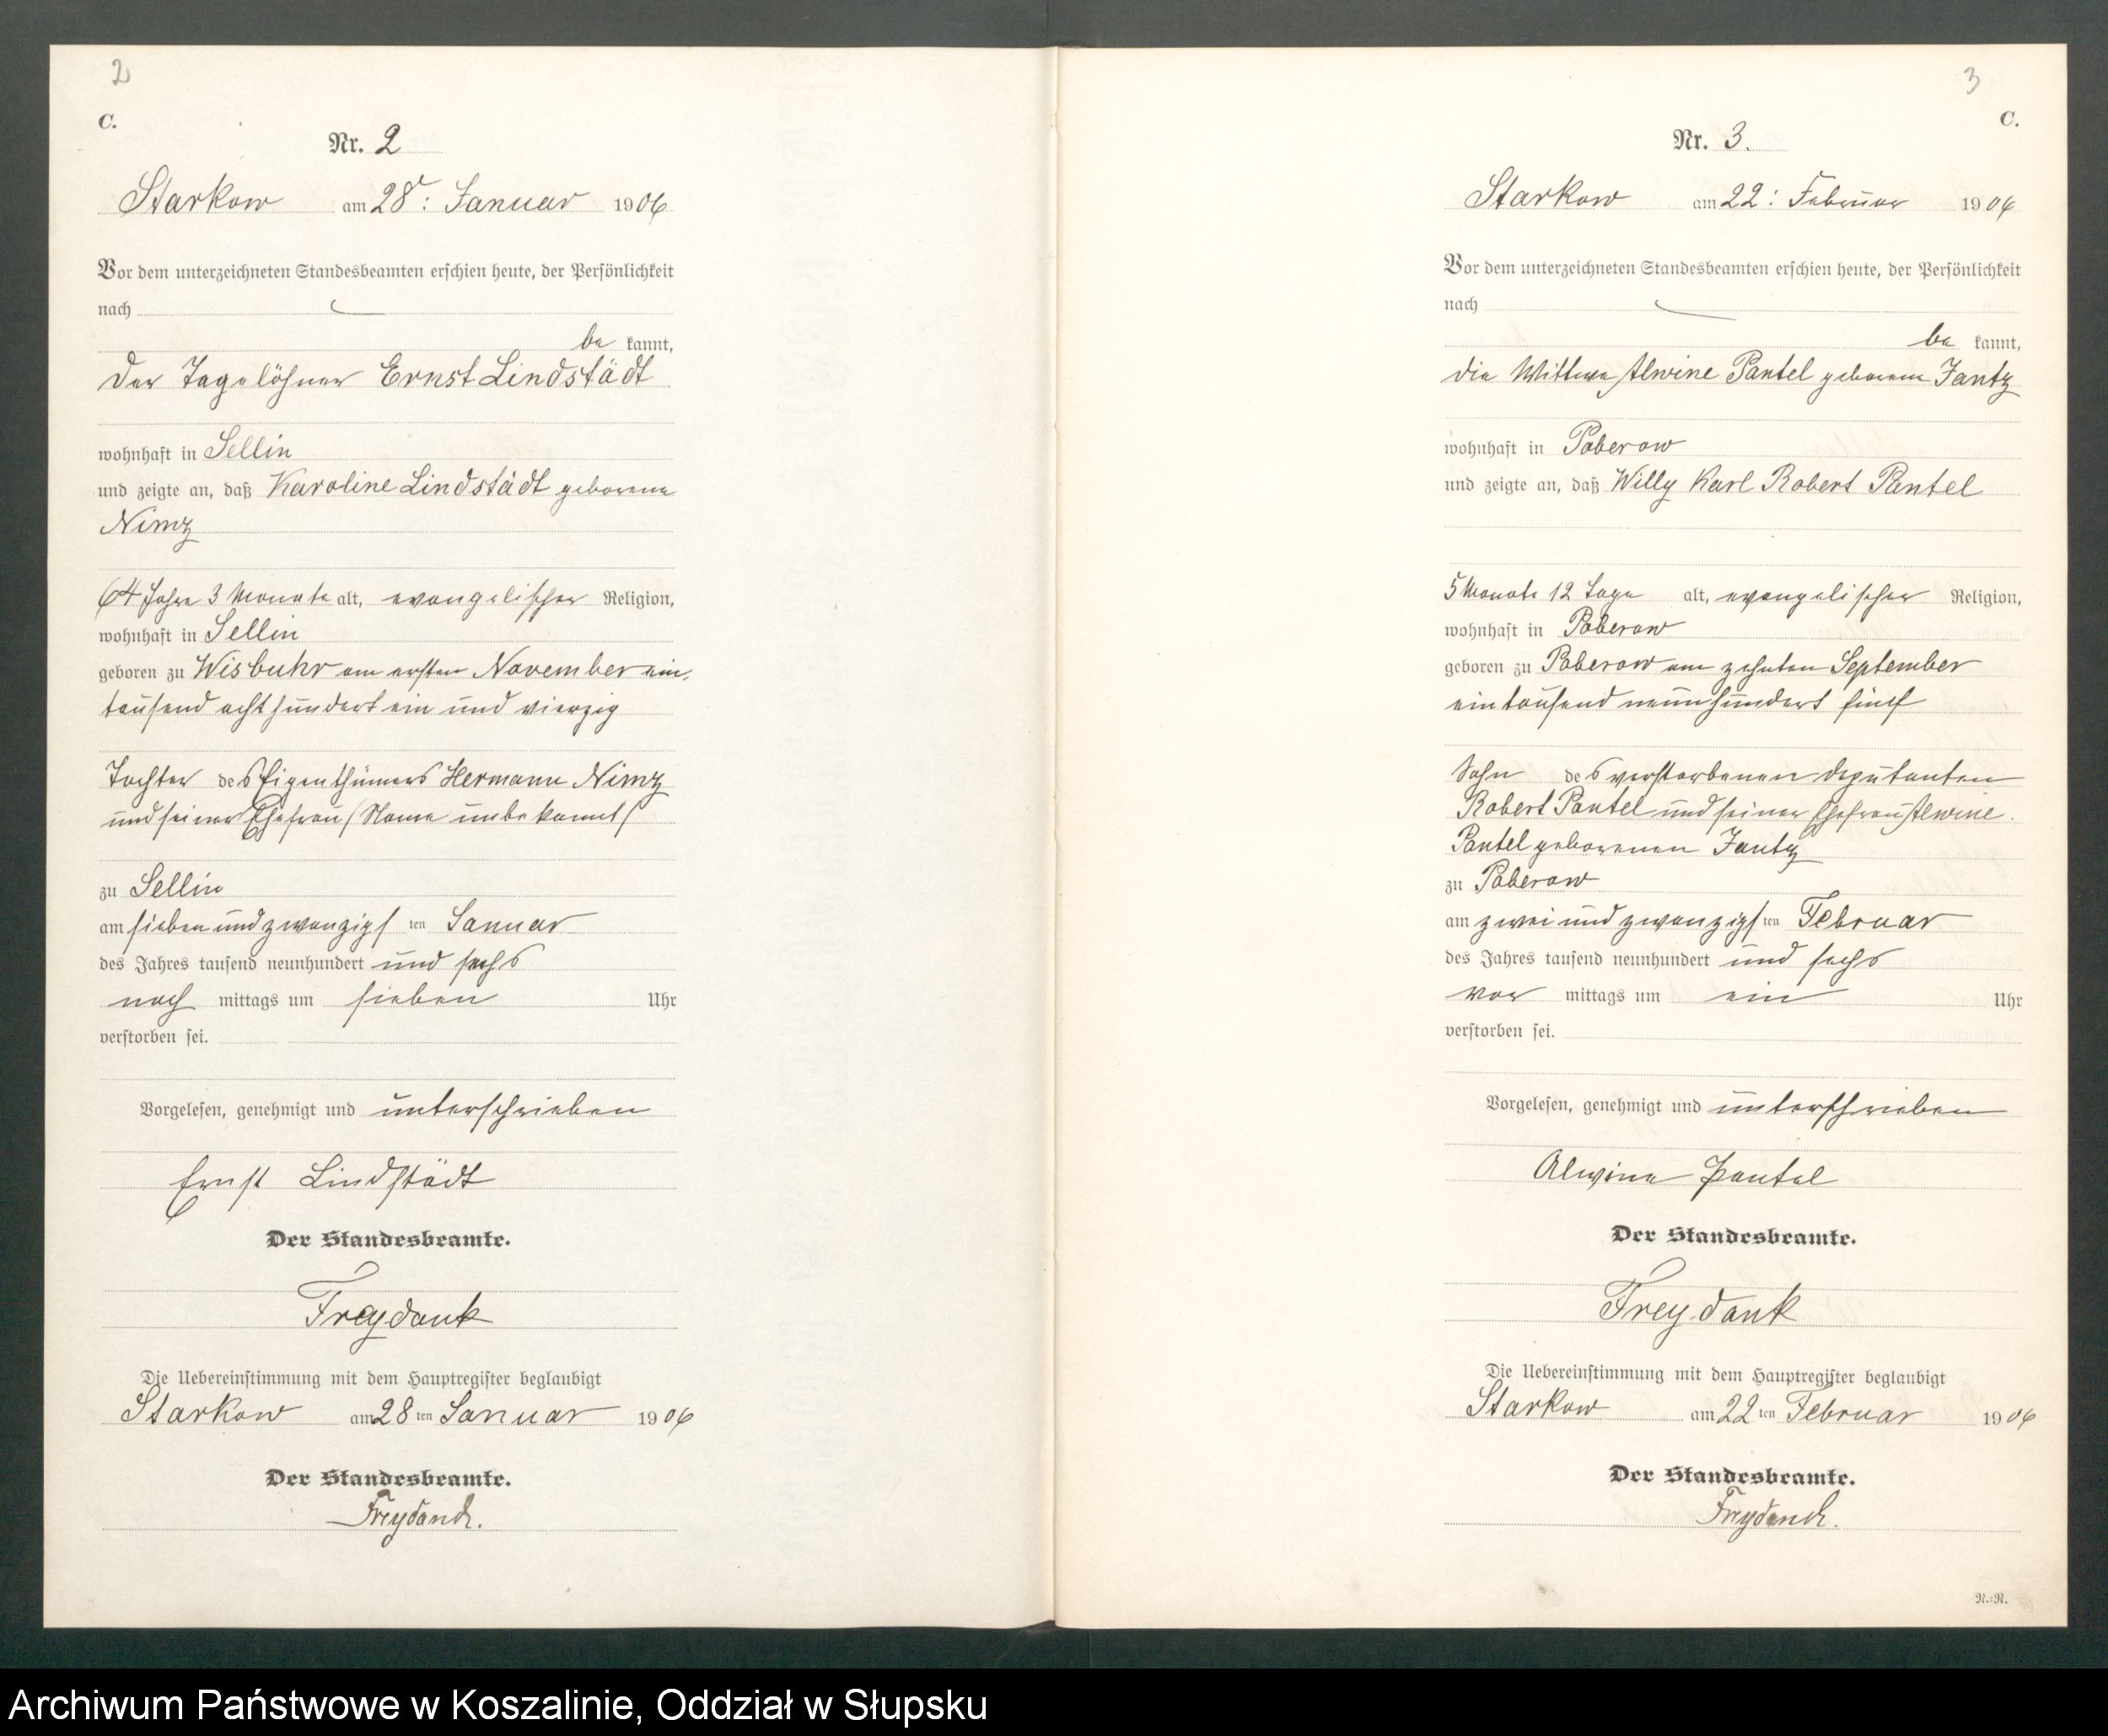 2
C.
Nr. 2
Starkow am 28t: Januar 1906
Vor dem unterzeichneten Standesbeamten erschien heute, der Persönlichkeit
nach
be kannt,
der Tagelöhner Ernst Lindstädt
wohnhaft in Sellin
und zeigte an, daß Karoline Lindstädt geborene
Nimz
64 Jahre 3 Monate alt, evangelischer Religion,
wohnhaft in Sellin
geboren zu Wisbuhr am ersten November ein,
tausend acht hundert ein und vierzig
Tochter des Eigenthümers Hermann Nimz
und seiner Ehefrau /Name unbekannt/
zu Sellin
am sieben und zwanzigsten Januar
des Jahres tausend neunhundert und sechs
nach mittags um sieben Uhr
verstorben sei.
Vorgelesen, genehmigt und unterschrieben
Ernst Lindstädt
Der Standesbeamte.
Freydank
Die Uebereinstimmung mit dem Hauptregister beglaubigt
Starkow am 28ten Januar 1906
Der Standesbeamte.
Freydank.
3
C.
Nr. 3.
Starkow am 22: Februar 1906
Vor dem unterzeichneten Standesbeamten erschien heute, der Persönlichkeit
nach
be kannt,
die Wittwe Alwine Pantel geborene Jantz
wohnhaft in Poberow
und zeigte an, daß Willy Karl Robert Pantel
5 Monate 12 Tage alt, evangelischer Religion,
wohnhaft in Poberow
geboren zu Poberow am zehnten September
eintausend neunhundert fünf
Sohn des verstorbenen Deputanten
Robert Pantel und seiner Ehefrau Alwine
Pantel geborenen Jantz
zu Poberow
am zwei und zwanzigsten Februar
des Jahres tausend neunhundert und sechs
vor mittags um ein Uhr
verstorben sei.
Vorgelesen, genehmigt und unterschrieben
Alwine Pantel
Der Standesbeamte.
Freydank
Die Uebereinstimmung mit dem Hauptregister beglaubigt
Starkow am 22ten Februar 1906
Der Standesbeamte.
Freydank.
N.=N.
Archiwum Państwowe w Koszalinie, Oddział w Słupsku